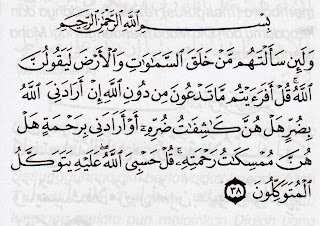 بِسْمِ اللَّهِ الرَّحْمَٰنِ الرَّحِيمِ
وَلَئِن سَأَلْتَهُم مَّنْ خَلَقَ السَّمَٰوَٰتِ وَالْأَرْضَ لَيَقُولُنَّ
اللَّهُ ۚ قُلْ أَفَرَءَيْتُم مَّا تَدْعُونَ مِن دُونِ اللَّهِ إِنْ أَرَادَنِيَ اللَّهُ
بِضُرٍّ هَلْ هُنَّ كَٰشِفَٰتُ ضُرِّهِ أَوْ أَرَادَنِي بِرَحْمَةٍ هَلْ
هُنَّ مُمْسِكَٰتُ رَحْمَتِهِ ۚ قُلْ حَسْبِيَ اللَّهُ ۖ عَلَيْهِ يَتَوَكَّلُ
الْمُتَوَكِّلُونَ ٣٨